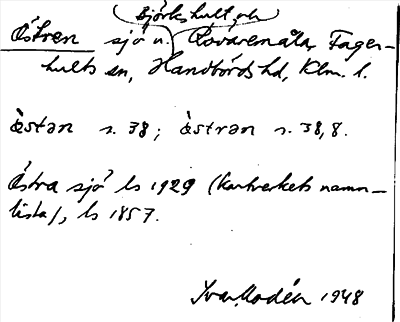 Björkshult och
Östren sjö n. Rövaremåla, Fager-
hults sn, Handbörds hd, Klm. l.
östən s. 38; östrən s. 38, 8.
Östra sjö ls 1929 (kartverkets namn-
lista), ls 1857.
Ivar Modéer 1948